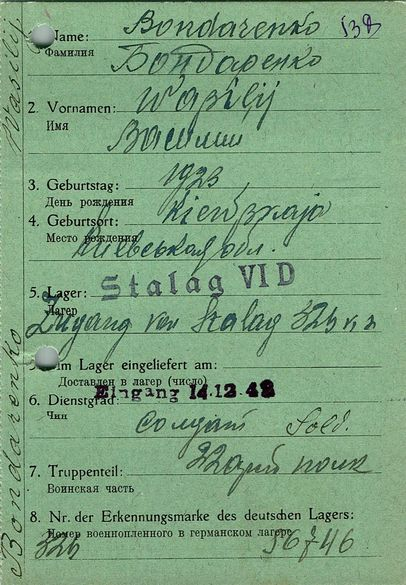 Name: Bondarenko
Фамилия Бондаренко
2. Vornamen: Wasilij
Имя Василий
3. Geburtstag: 1923
День рождения
4. Geburtsort: Kiewskaja
Место рождения
Киевськая обл.
5. Lager: Stalag VI D
Лагер
Zugang von Stalag 326
Im Lager eingeliefert am:
Доставлен в лагер (число)
Eingang 14.12.42
6. Dienstgrad:
Чин солдат Sold.
7. Truppenteil: полк
Воинская часть
8. Nr. der Erkennungsmarke des deutschen Lagers:
Номер военнопленного в германском лагере
326 56746
Bondarenko Wasilij